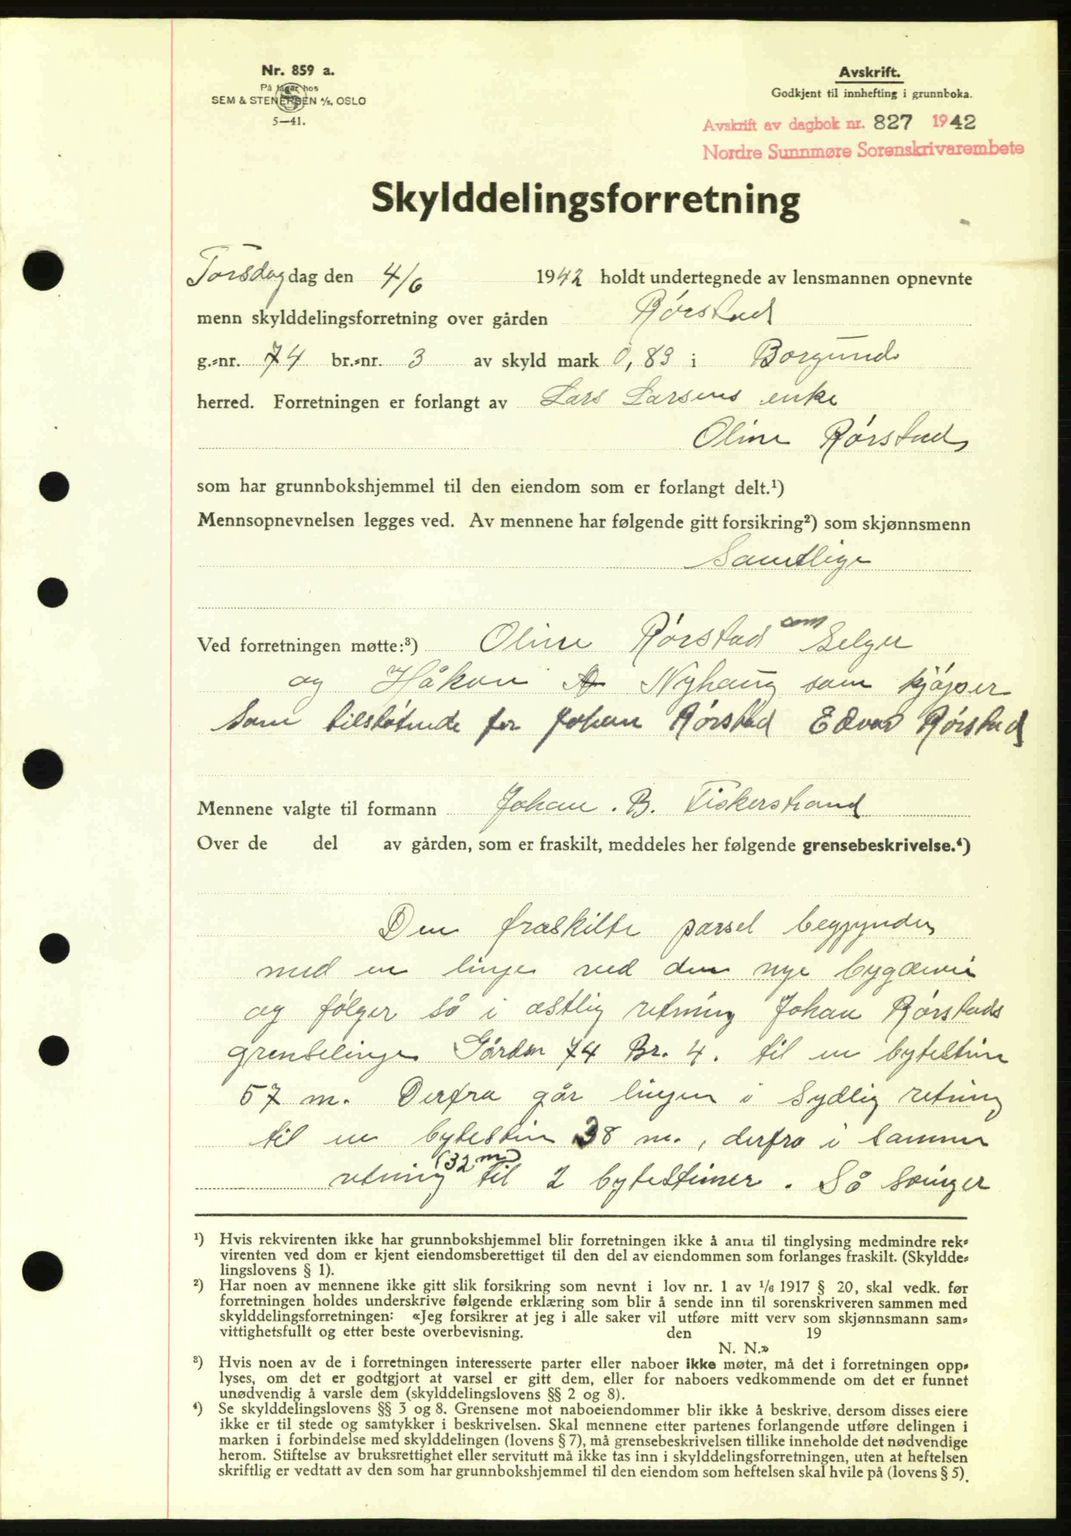 Nr. 859 a.
På lager hos
SEM & STENERSEN A/S, OSLO
5—41.
Avskrift.
Godkjent til innhefting i grunnboka.
Avskrift av dagbok nr. 827 1942
Nordre Sunnmøre Sorenskrivarembete
Skylddelingsforretning
Torsdag dag den 4/6 1942 holdt undertegnede av lensmannen opnevnte
menn skylddelingsforretning over gården Rørstad
g.-nr. 74 br.-nr. 3 av skyld mark 0,83 i Borgund
herred. Forretningen er forlangt av Lars Larsens enke
Oline Rørstad
som har grunnbokshjemmel til den eiendom som er forlangt delt.¹)
Mennsopnevnelsen legges ved. Av mennene har følgende gitt forsikring²) som skjønnsmenn
Samtlige
Ved forretningen møtte:³) Oline Rørstad som Selger
og Håkon Nyhaug som kjøper
Som tilstøtende for Johan Rørstad Edvard Rørstad
Mennene valgte til formann Johan B. Fiskerstrand
Over de del av gården, som er fraskilt, meddeles her følgende grensebeskrivelse.⁴)
Den fraskilte parsel begynder
med en linje ved den nye bygdevei
og følger så i østlig retning Johan Rørstads
grenselinje Gårdsn 74 Br. 4. til en bytestein
57 m. Derfra går linjen i Sydlig retning
til en bytestein 38 m., derfra i samme
retning (32 m) til 2 bytesteiner. Så svinger
¹) Hvis rekvirenten ikke har grunnbokshjemmel blir forretningen ikke å anta til tinglysing medmindre rek-
virenten ved dom er kjent eiendomsberettiget til den del av eiendommen som forlanges fraskilt. (Skyldde-
lingslovens § 1).
²) Har noen av mennene ikke gitt slik forsikring som nevnt i lov nr. 1 av 1/6 1917 § 20, skal vedk. før
forretningen holdes underskrive følgende erklæring som blir å sende inn til sorenskriveren sammen med
skylddelingsforretningen: «Jeg forsikrer at jeg i alle saker vil utføre mitt verv som skjønnsmann sam-
vittighetsfullt og etter beste overbevisning. den 19
N. N.»
³) Hvis noen av de i forretningen interesserte parter eller naboer ikke møter, må det i forretningen opp-
lyses, om det er godtgjort at varsel er gitt dem, eller for naboers vedkommende om det er funnet
unødvendig å varsle dem (skylddelingslovens §§ 2 og 8).
⁴) Se skylddelingslovens §§ 3 og 8. Grensene mot naboeiendommer blir ikke å beskrive, dersom disses eiere
ikke er til stede og samtykker i beskrivelsen. Skal mennene etter partenes forlangende utføre delingen i
marken i forbindelse med skylddelingen (lovens § 7), må grensebeskrivelsen tillike inneholde det nødvendige
herom. Stiftelse av bruksrettighet eller servitutt må ikke tas inn i skylddelingsforretningen, uten at heftelsen
skriftlig er vedtatt av den som har grunnbokshjemmel til den eiendom som heftelsen skal hvile på (lovens § 5).